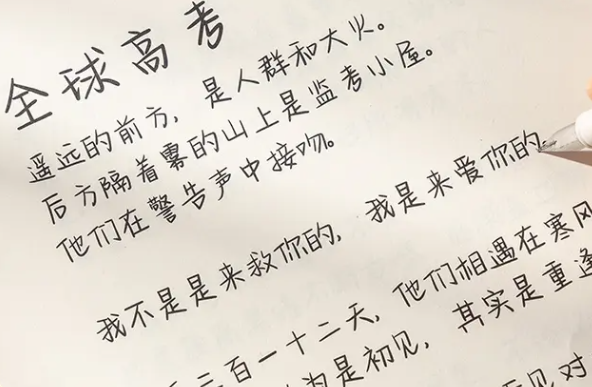 全球高考
遥远的前方，是人群和大火。
后方隔着雾的山上是监考小屋。
他们在警告声中接吻。
我不是是来救你的，我是来爱你的
三百一十二天，他们相遇在寒风
为是初见，其实是重逢
见对